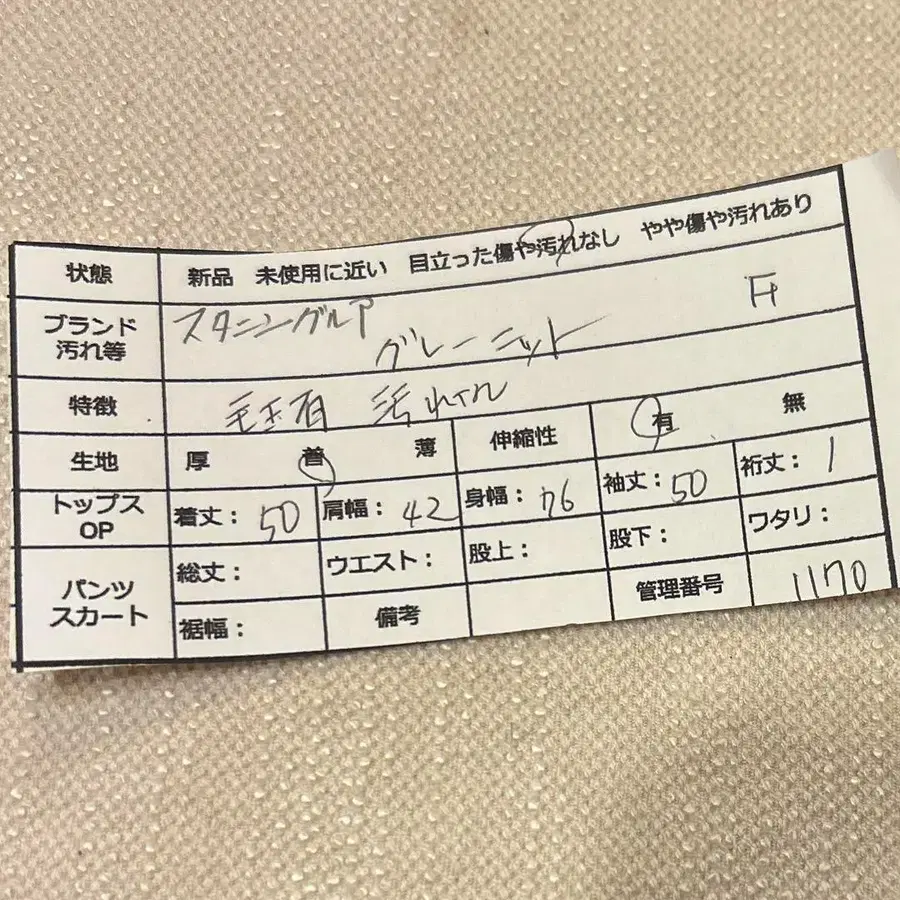 状態 新品 未使用に近い 目立った傷や汚れなし やや傷や汚れあり
ブランド 汚れ等 スタニングルア グレーニット F
特徴 毛玉有 汚れ
生地 厚 普 薄 伸縮性 有 無
トップス OP 着丈: 50 肩幅: 42 身幅: 46 袖丈: 50 裄丈: /
パンツ スカート 総丈: ウエスト: 股上: 股下: ワタリ:
裾幅: 備考 管理番号 1170